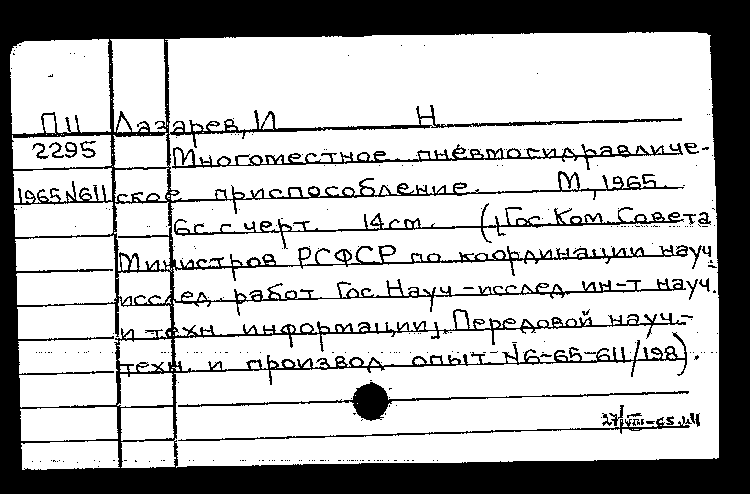 П11 Лазарев, И Н
2295 Многоместное пневмогидравличе-
1965N611 ское приспособление. М., 1965.
6с с черт. 14см. ([Гос Ком. Совета
Министров РСФСР по координации науч.
исслед. работ Гос. Науч-исслед. ин-т науч.
и техн. информации]. Передовой науч.-
техн. и производ. опыт. N6-65-611/198).
27/VIII-65